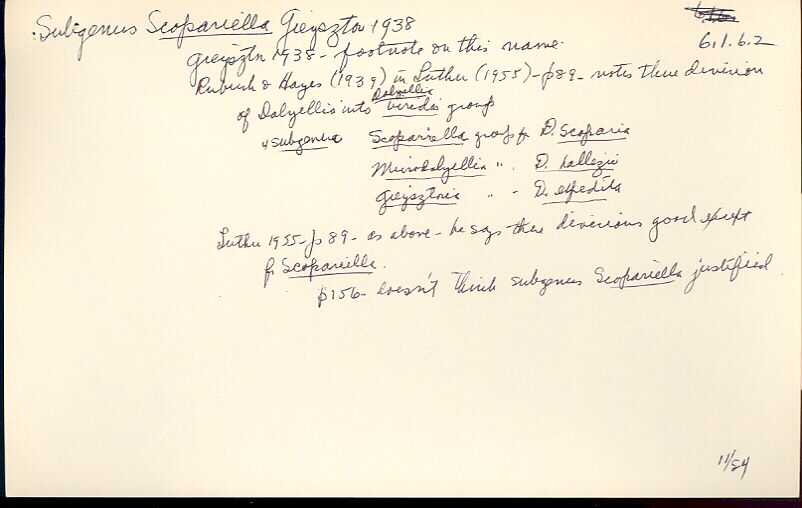 Subgenus Scopariella Gieysztor 1938
6.1.6.2
Gieysztor 1938 - footnote on this name.
Ruebush & Hayes (1939) in Luther (1955) - p89 - notes there division
Dalyellia
of Dalyellia into viridis group
4 subgenera Scopariella group for D. scoparia
Microdalyellia " . D. hallezii
Gieysztoria " - D. expedita
Luther 1955 - p 89 - as above - he says these divisions good except
for Scopariella.
p156 - doesn't think subgenus Scopariella justified
11/84